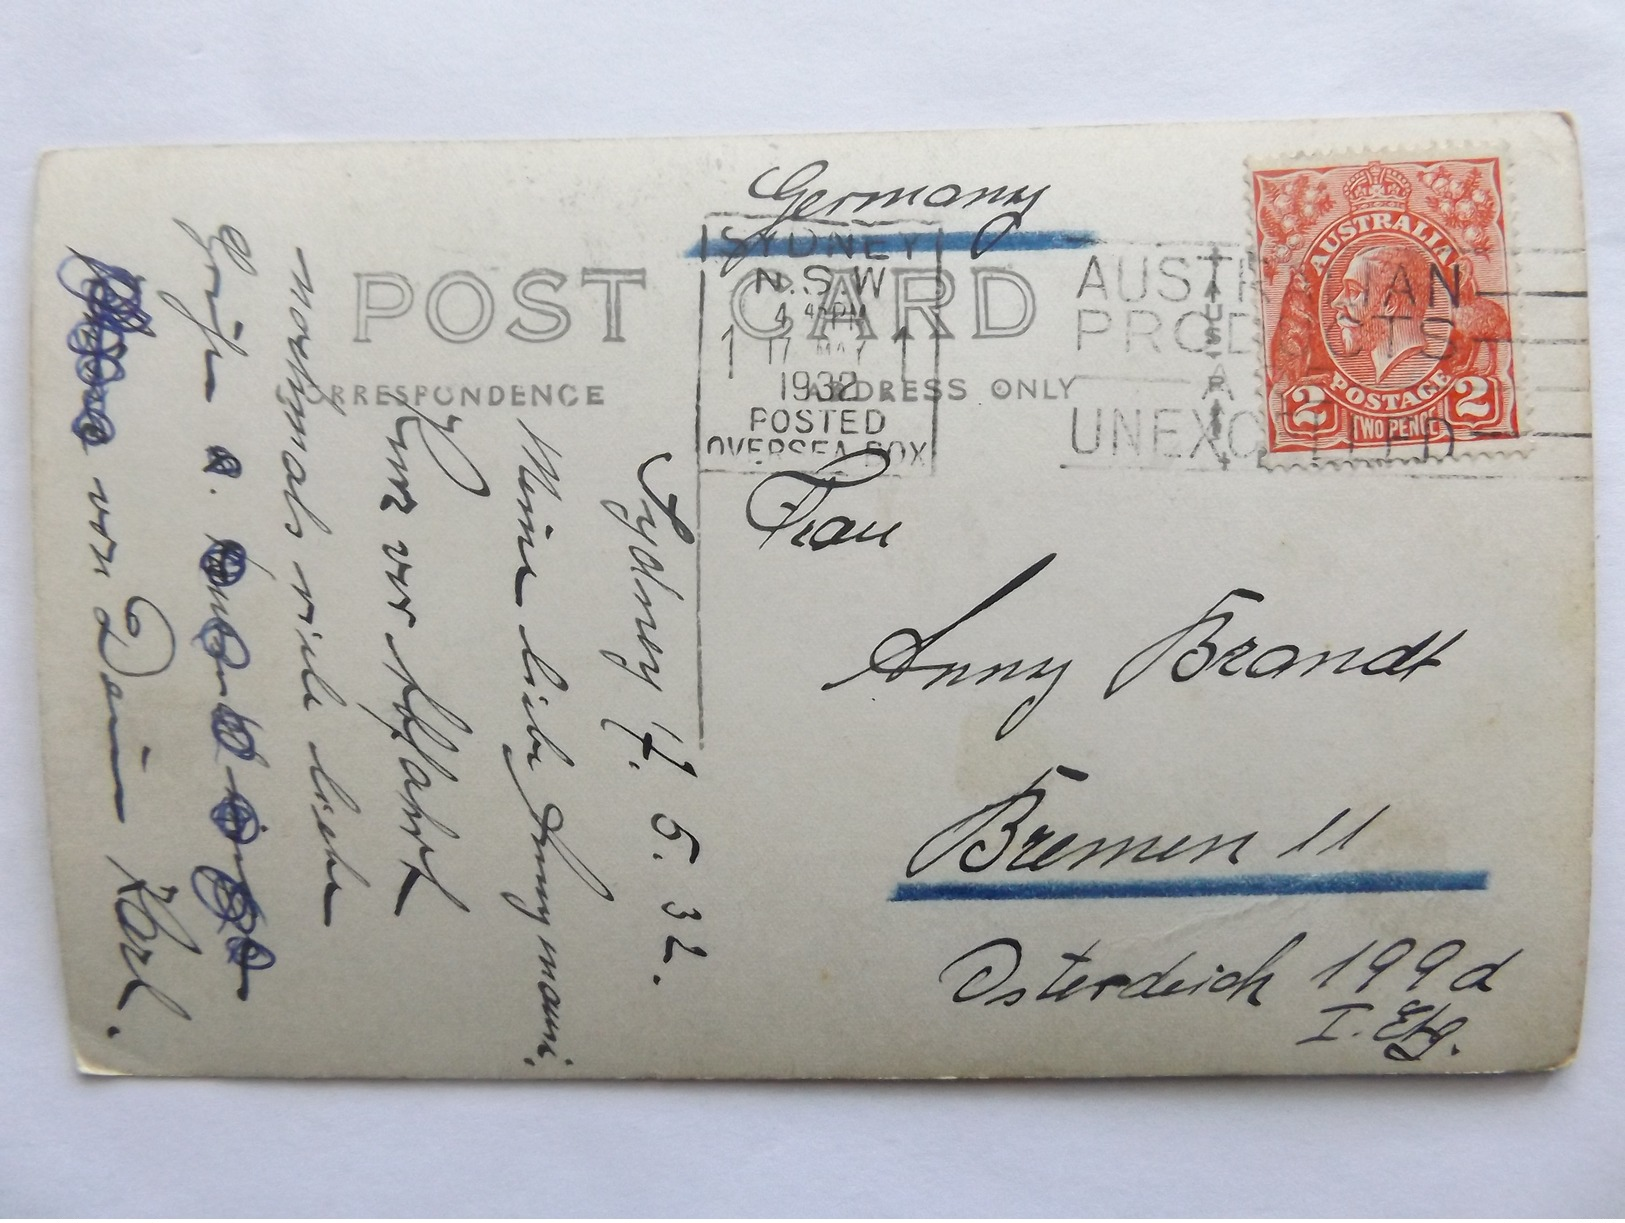 POST CARD
CORRESPONDENCE
ADDRESS ONLY
Germany
SYDNEY
N.S.W
4 45 PM
1 17 MAY 1
1932
POSTED
OVERSEA BOX
AUSTRALIAN
PRODUCTS
ARE
UNEXCELLED
AUSTRALIA
POSTAGE
2 TWO PENCE 2
Frau
Anny Brandt
Bremen 11
Osterdeich 199d
I. Etg.
Sydney 17. 5. 32.
Meine liebe Annymami,
Kurz vor Abfahrt
nochmals viele liebe
Grüße u.
von Dein Karl.